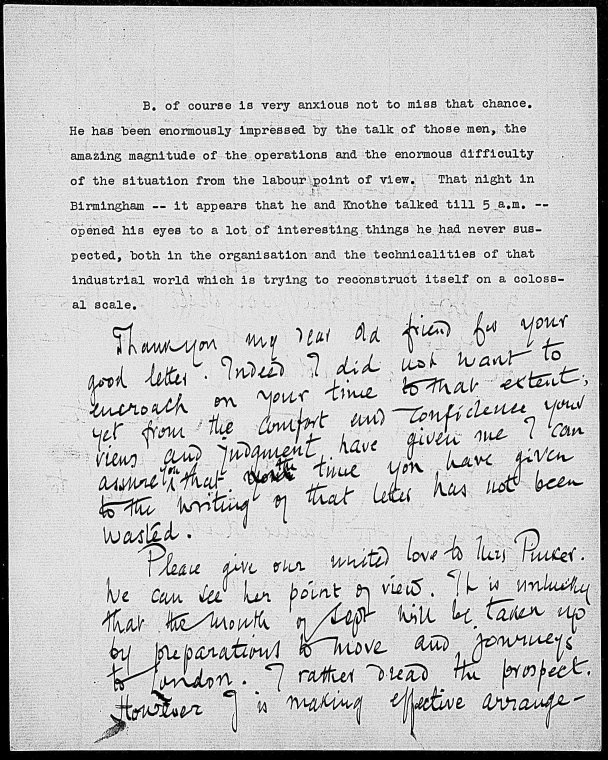 B. of course is very anxious not to miss that chance.
He has been enormously impressed by the talk of those men, the
amazing magnitude of the operations and the enormous difficulty
of the situation from the labour point of view. That night in
Birmingham -- it appears that he and Knothe talked till 5 a.m. --
opened his eyes to a lot of interesting things he had never sus-
pected, both in the organisation and the technicalities of that
industrial world which is trying to reconstruct itself on a coloss-
al scale.
Thank you my dear old friend for your
good letter. Indeed I did not want to
encroach on your time to that extent;
yet from the comfort and confidence your
views and judgment have given me I can
assure you that the time you have given
to the writing of that letter has not been
wasted.
Please give our united love to Mrs Pinker.
We can see her point of view. It is unlucky
that the month of Sept will be taken up
by preparations to move and journeys
to London. I rather dread the prospect.
However J is making effective arrange-